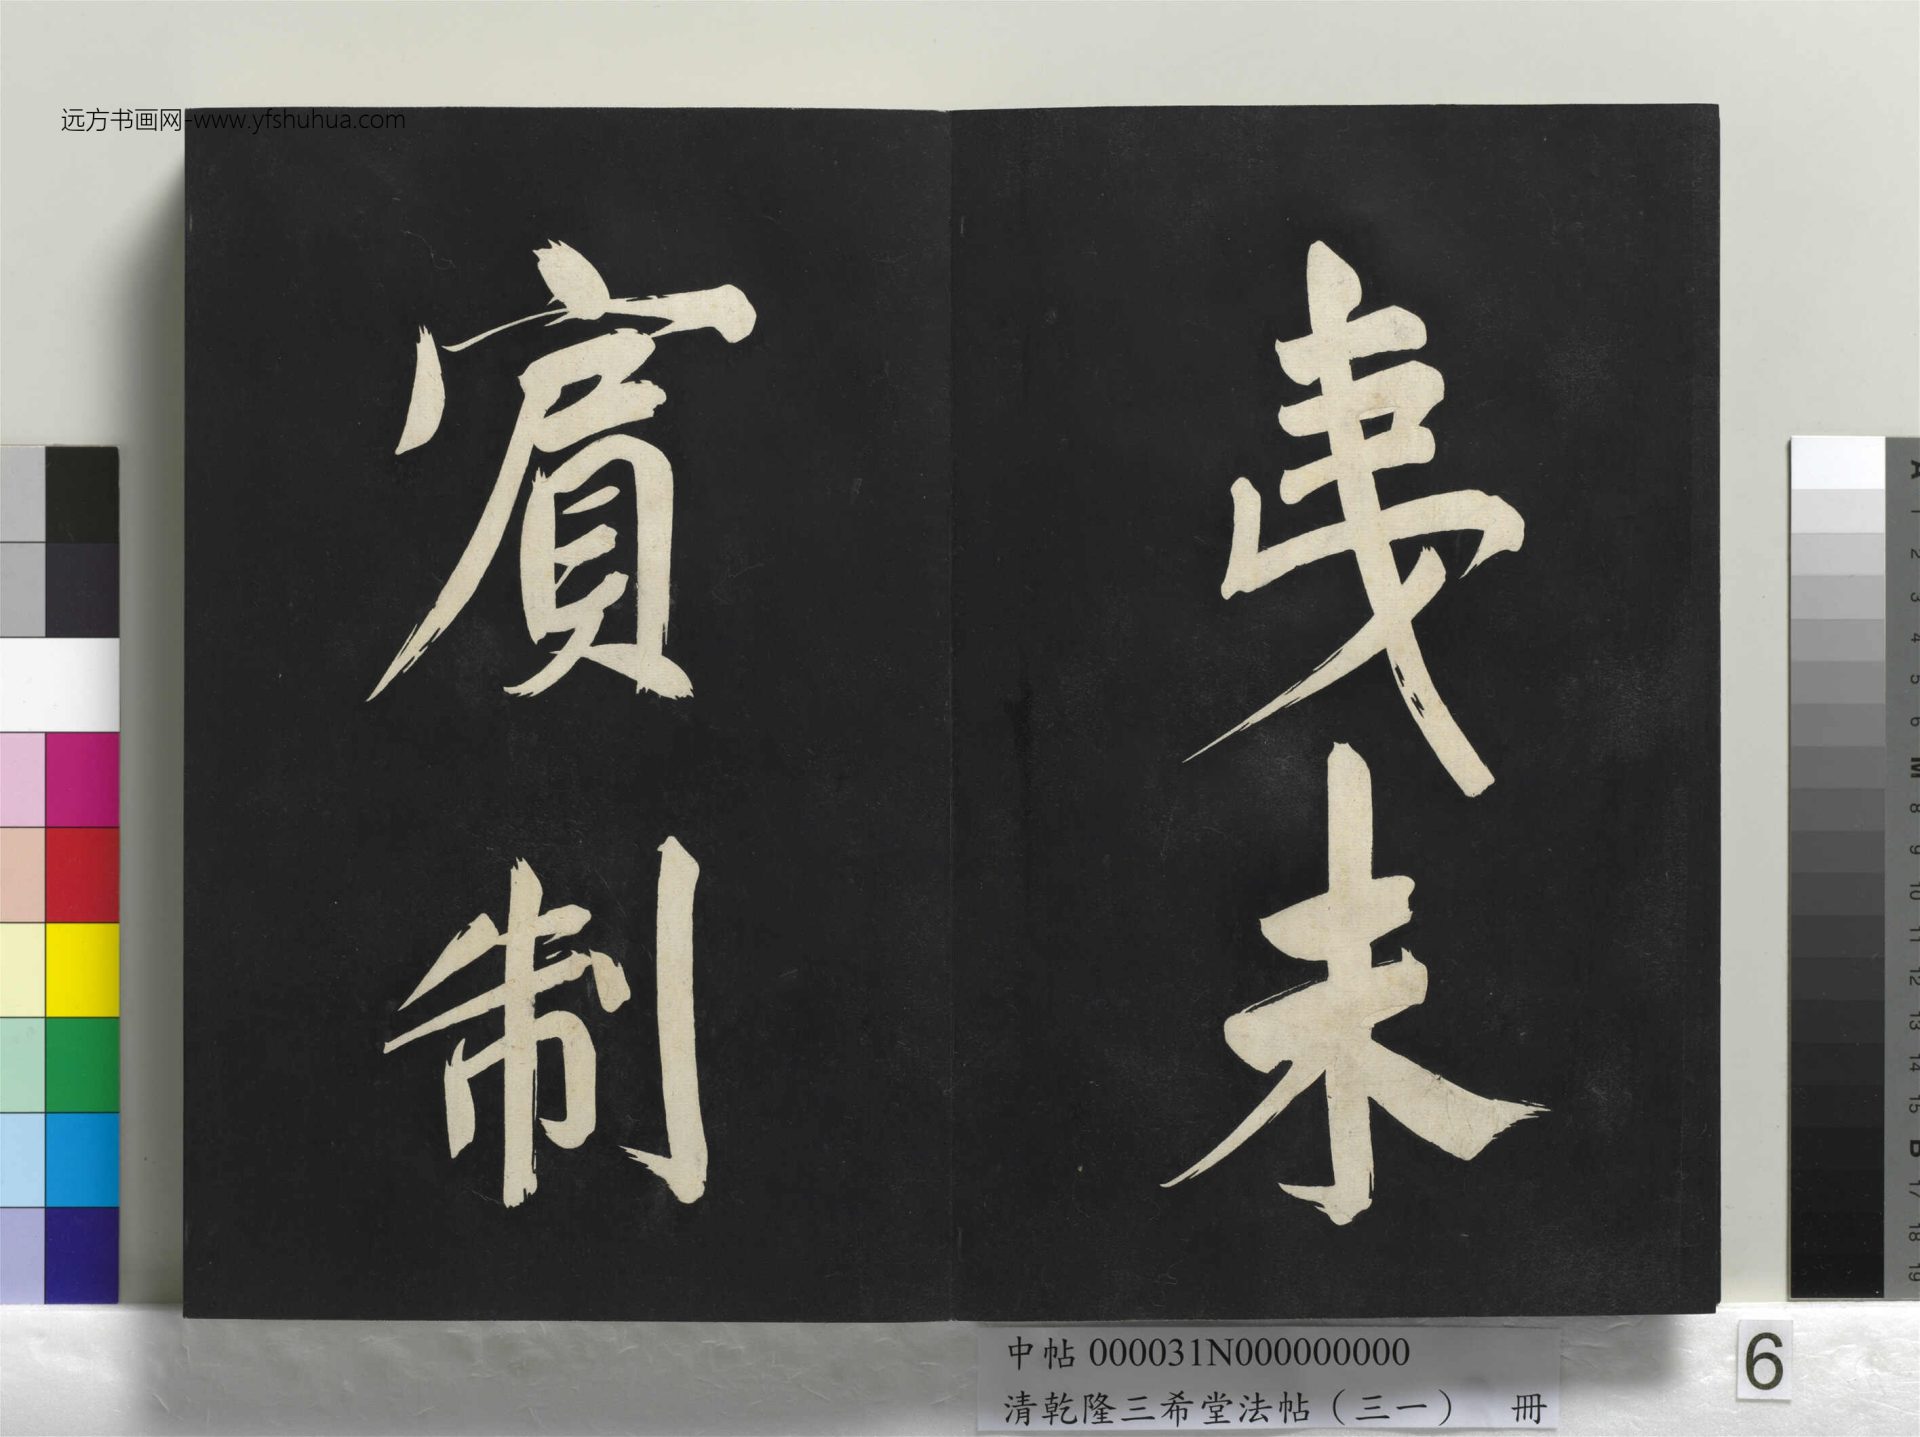 远方书画网-www.yfshuhua.com
夷未
賓制
中帖 000031N000000000
清乾隆三希堂法帖（三一） 冊
6
A
1
2
3
4
5
6
M
8
9
10
11
12
13
14
15
B
17
18
19